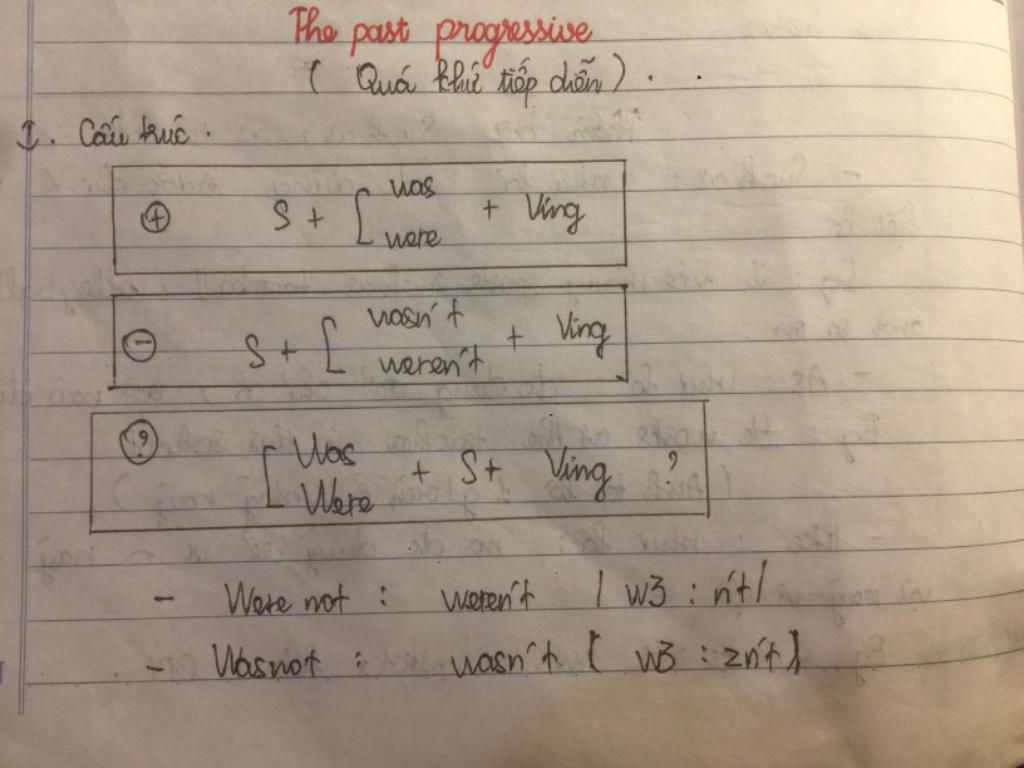 The past progressive
( Quá khứ tiếp diễn ) .
I. Cấu trúc .
(+) S + [ was / were + Ving
(-) S + [ wasn't / weren't + Ving
(?) [ Was / Were + S + Ving ?
- Were not : weren't / w3 : n't/
- Was not : wasn't [ w3 : zn't]